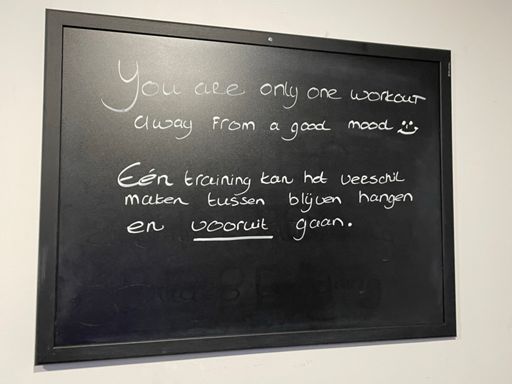 You are only one workout
away from a good mood
Eén training kan het verschil
maken tussen blijven hangen
en vooruit gaan.